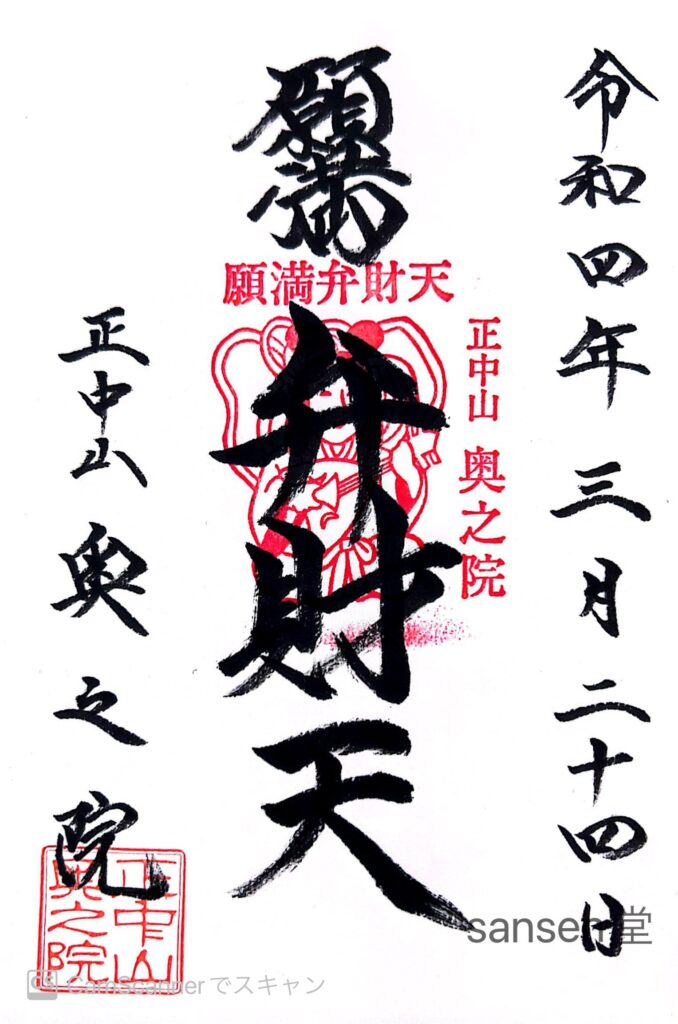 令和四年 三月二十四日
願満
弁財天
願満弁財天
正中山 奥之院
正中山 奥之院
正中山
奥之院
sansen堂
CS CamScannerでスキャン